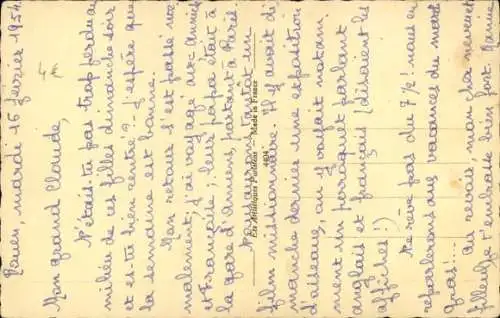 Rouen, mardi 16 février 1954
Mon grand Claude,
N'étais-tu pas trop perdu au
milieu de ces filles dimanche soir
et es-tu bien rentré ? - J'espère que
la semaine est bonne.
Mon retour s'est passé nor-
malement; j'ai voyagé avec Annie
et Françoise; leur papa était à
la gare d'Amiens, partant à Paris.
Nous aurons tantôt un
film missionnaire. Il y avait di-
manche dernier une exposition
d'oiseaux; on y voyait notam-
ment un perroquet parlant
anglais et français (disaient les
affiches !)
Ne rêve pas du 7 ½ ! nous en
reparlerons aux vacances du mardi
gras!...
Au revoir, mon cher neveu et
filleul, je t'embrasse bien fort.
Eos Artistiques Made in France